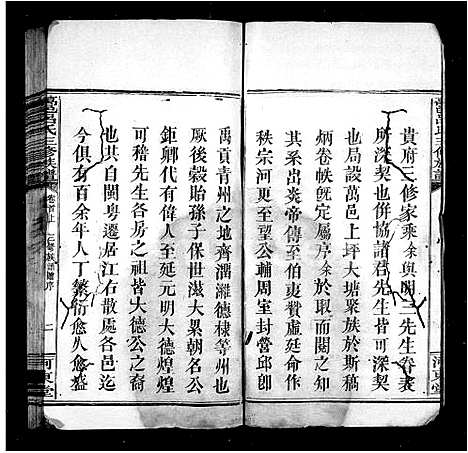 貴府三修家乘余與開三先生眷表
所深契也併協諸君先生皆可深契
也局設萬邑上坪大塘聚族於斯稿
炳卷帙既定屬序余於展而閱之知
其系出炎帝傳至伯夷贊虞廷命作
秩宗河東望公輔周室封營邱卽
禹貢青州之地齊潤濰德棣等州也
厥後穀貽孫子保世滋大累朝名公
鉅卿代有偉人至延元明大德煌煌
可稽先生各房之祖皆大德公之裔
代其自閩粵遷居江右散處各邑迄
今俱有百余年人丁繁衍愈久愈盛
萬邑呂氏三修族譜
卷首上
二
河東堂